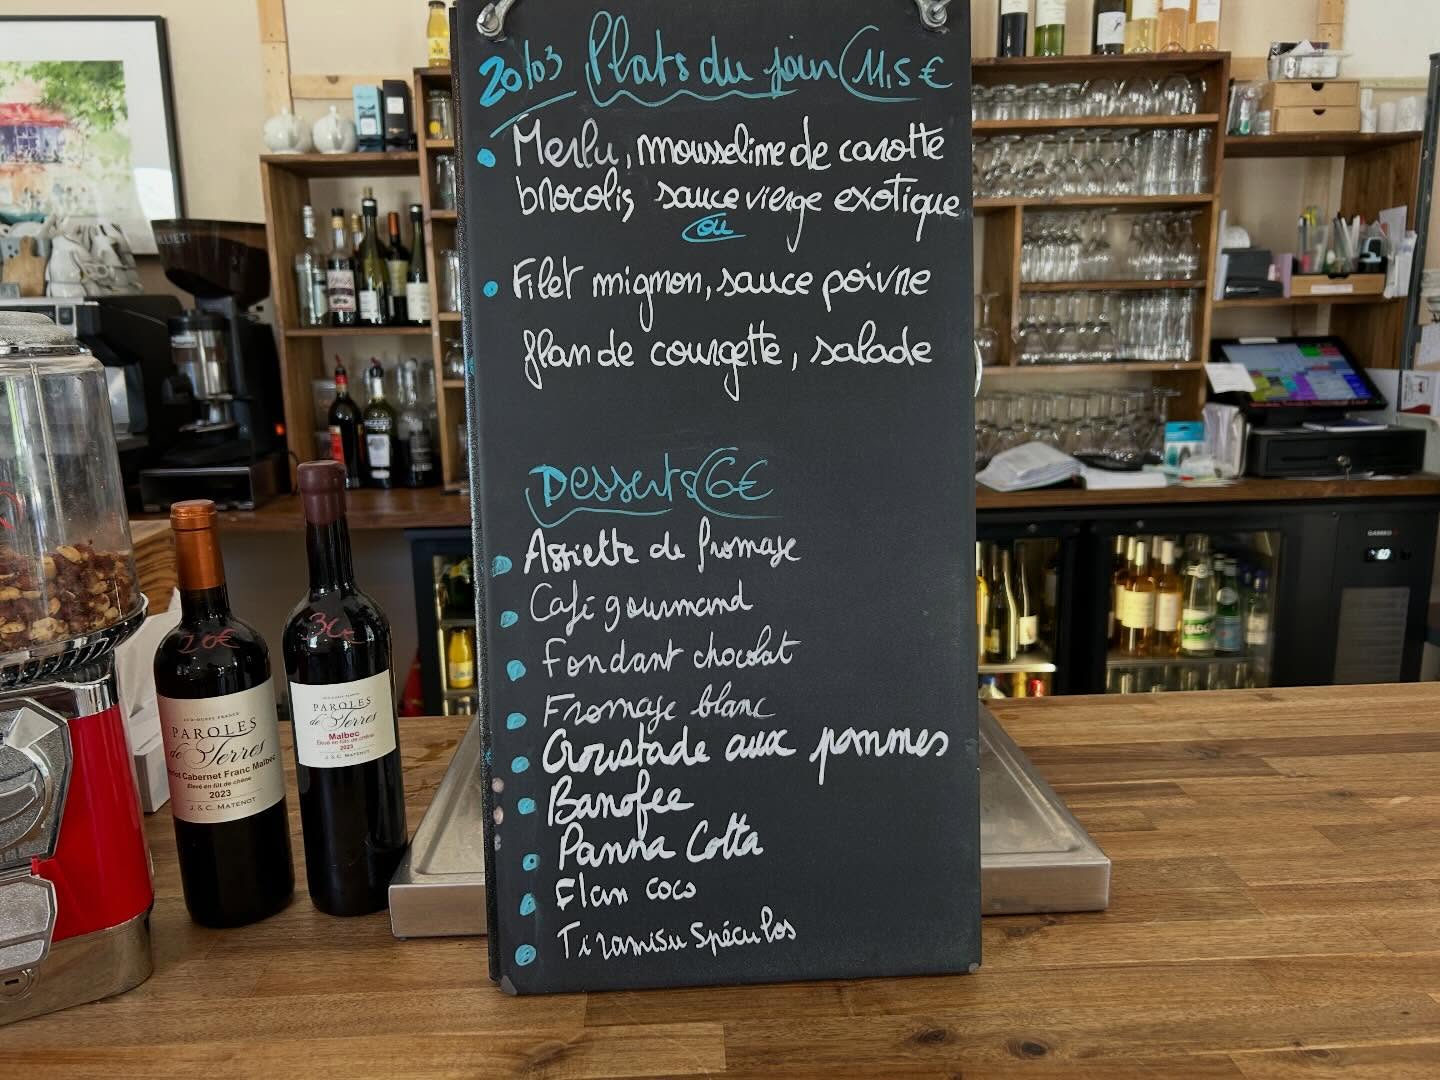 20/03 Plats du jour 11,5 €
Merlu, mousseline de carotte
brocolis sauce vierge exotique
ou
Filet mignon, sauce poivre
flan de courgette, salade
Desserts 6€
Assiette de fromage
Café gourmand
Fondant chocolat
Fromage blanc
Croustade aux pommes
Banofee
Panna Cotta
Flan coco
Tiramisu Spéculos
20€
PAROLES
de Terres
Cabernet Franc Malbec
Elevé en fût de chêne
2023
J. & C. MATENOT
PAROLES
de Terres
Malbec
Elevé en fût de chêne
2023
J. & C. MATENOT